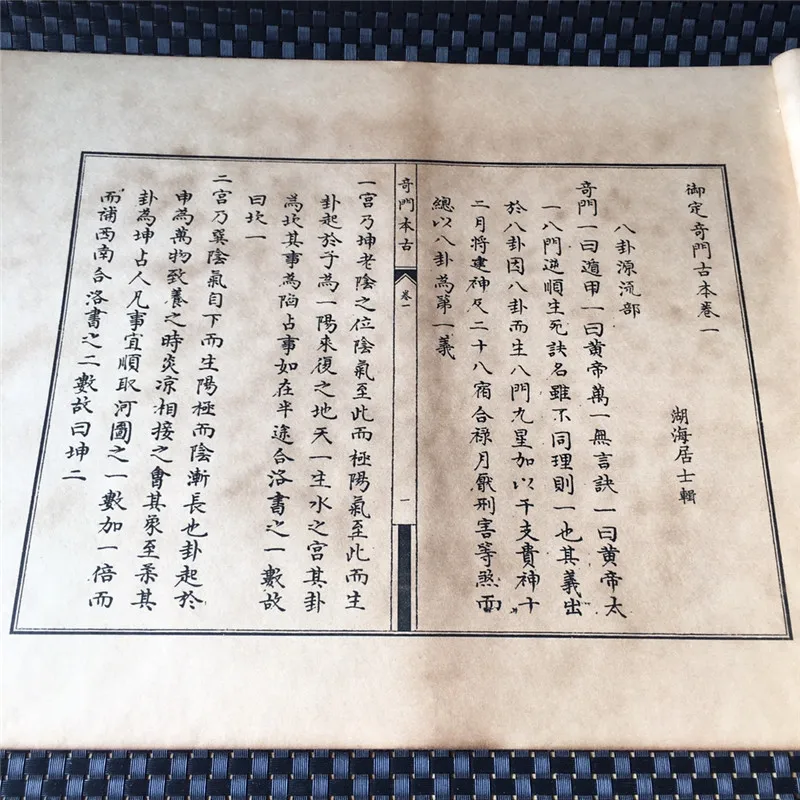 御定奇門古本卷一
湖海居士輯
八卦源流部
奇門一曰遁甲一曰黃帝萬一無言訣一曰黃帝太
一八門逆順生死訣名雖不同理則一也其義出
於八卦因八卦而生八門九星加以干支貴神十
二月將建神及二十八宿合祿月厭刑害等煞而
總以八卦為第一義
奇門本古
卷一
一
一宮乃坤老陰之位陰氣至此而極陽氣至此而生
卦起於子為一陽來復之地天一生水之宮其卦
為坎其事為陷占事如在半途合洛書之一數故
曰坎一
二宮乃巽陰氣自下而生陽極而陰漸長也卦起於
申為萬物致養之時炎凉相接之會其象至柔其
卦為坤占人凡事宜順取河圖之一數加一倍而
而補西南合洛書之二數故曰坤二